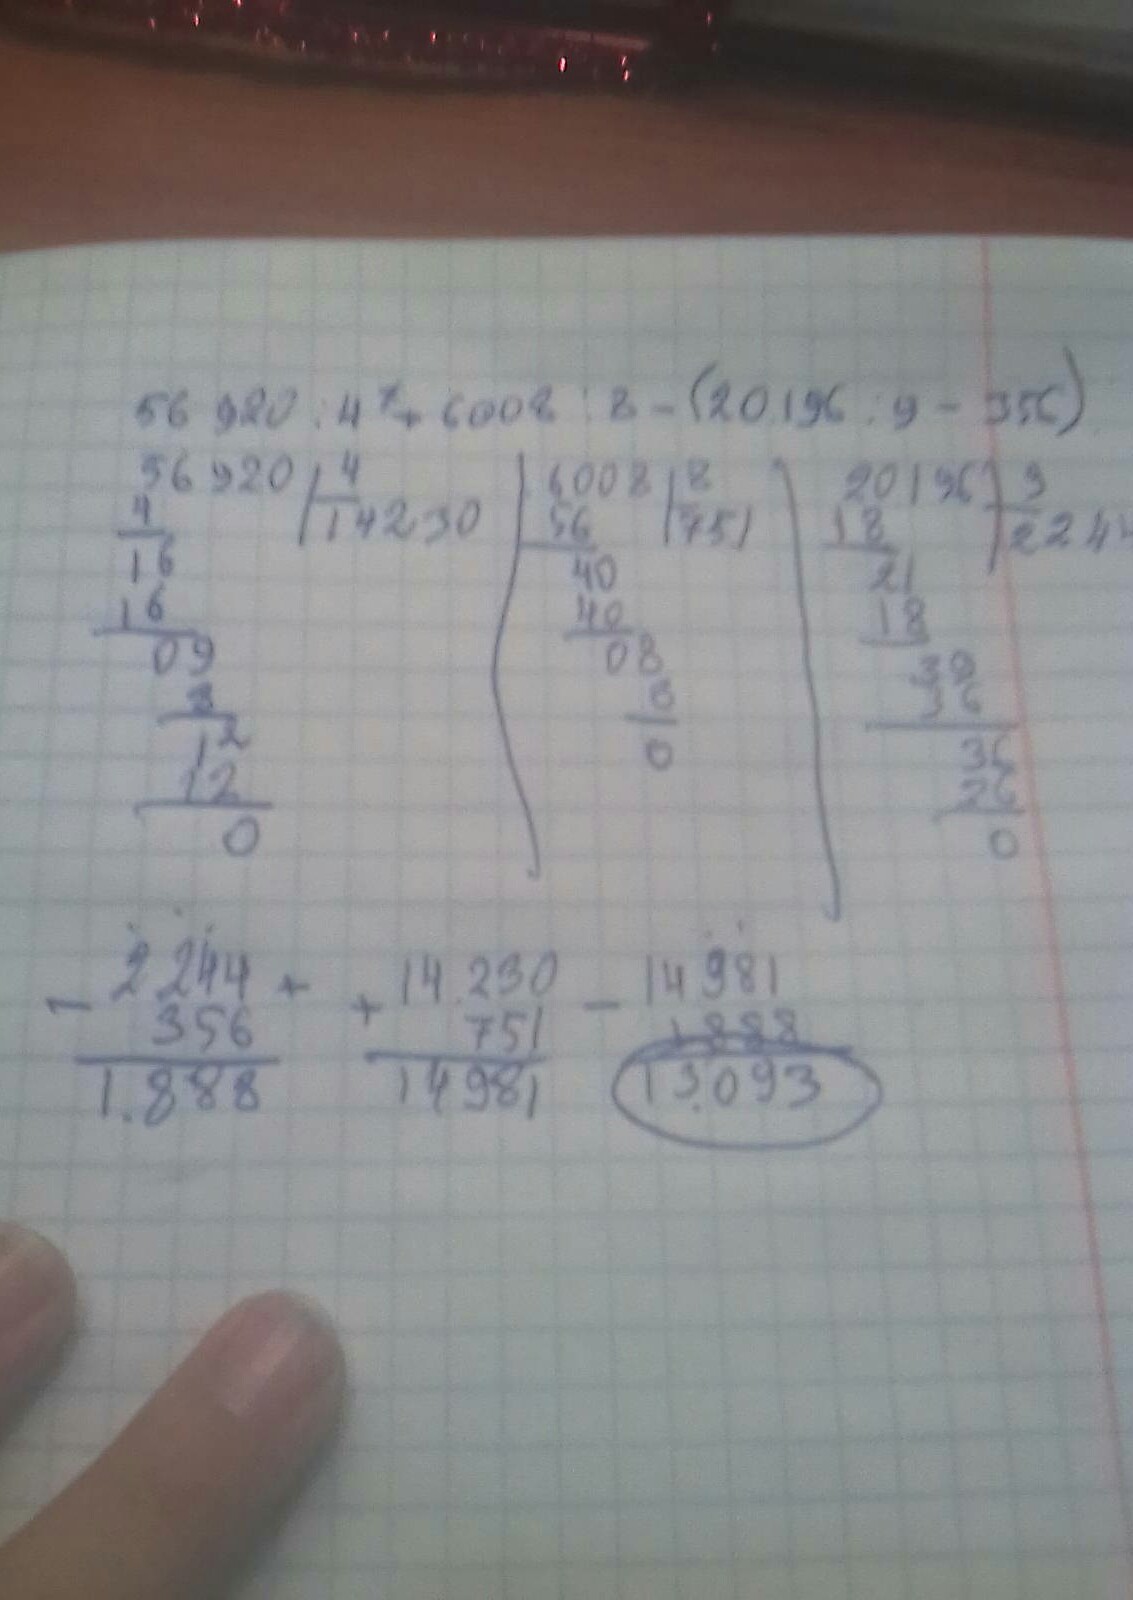 56 920 : 4 + 6008 : 8 - (20.196 : 9 - 356)
56 920 4 6008 8 20196 9
4 14230 56 751 18 224
16 40 21
16 40 18
09 08 39
8 8 36
12 0 36
12 26
0 0
- 2 244 + + 14.230 - 14 981
356 751 1888
1.888 14981 13.093